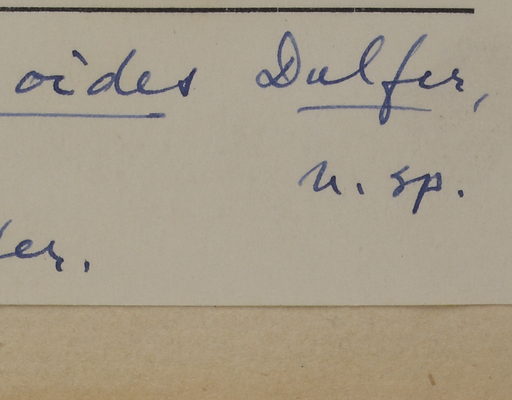 oides Dulfer,
n. sp.
fer.